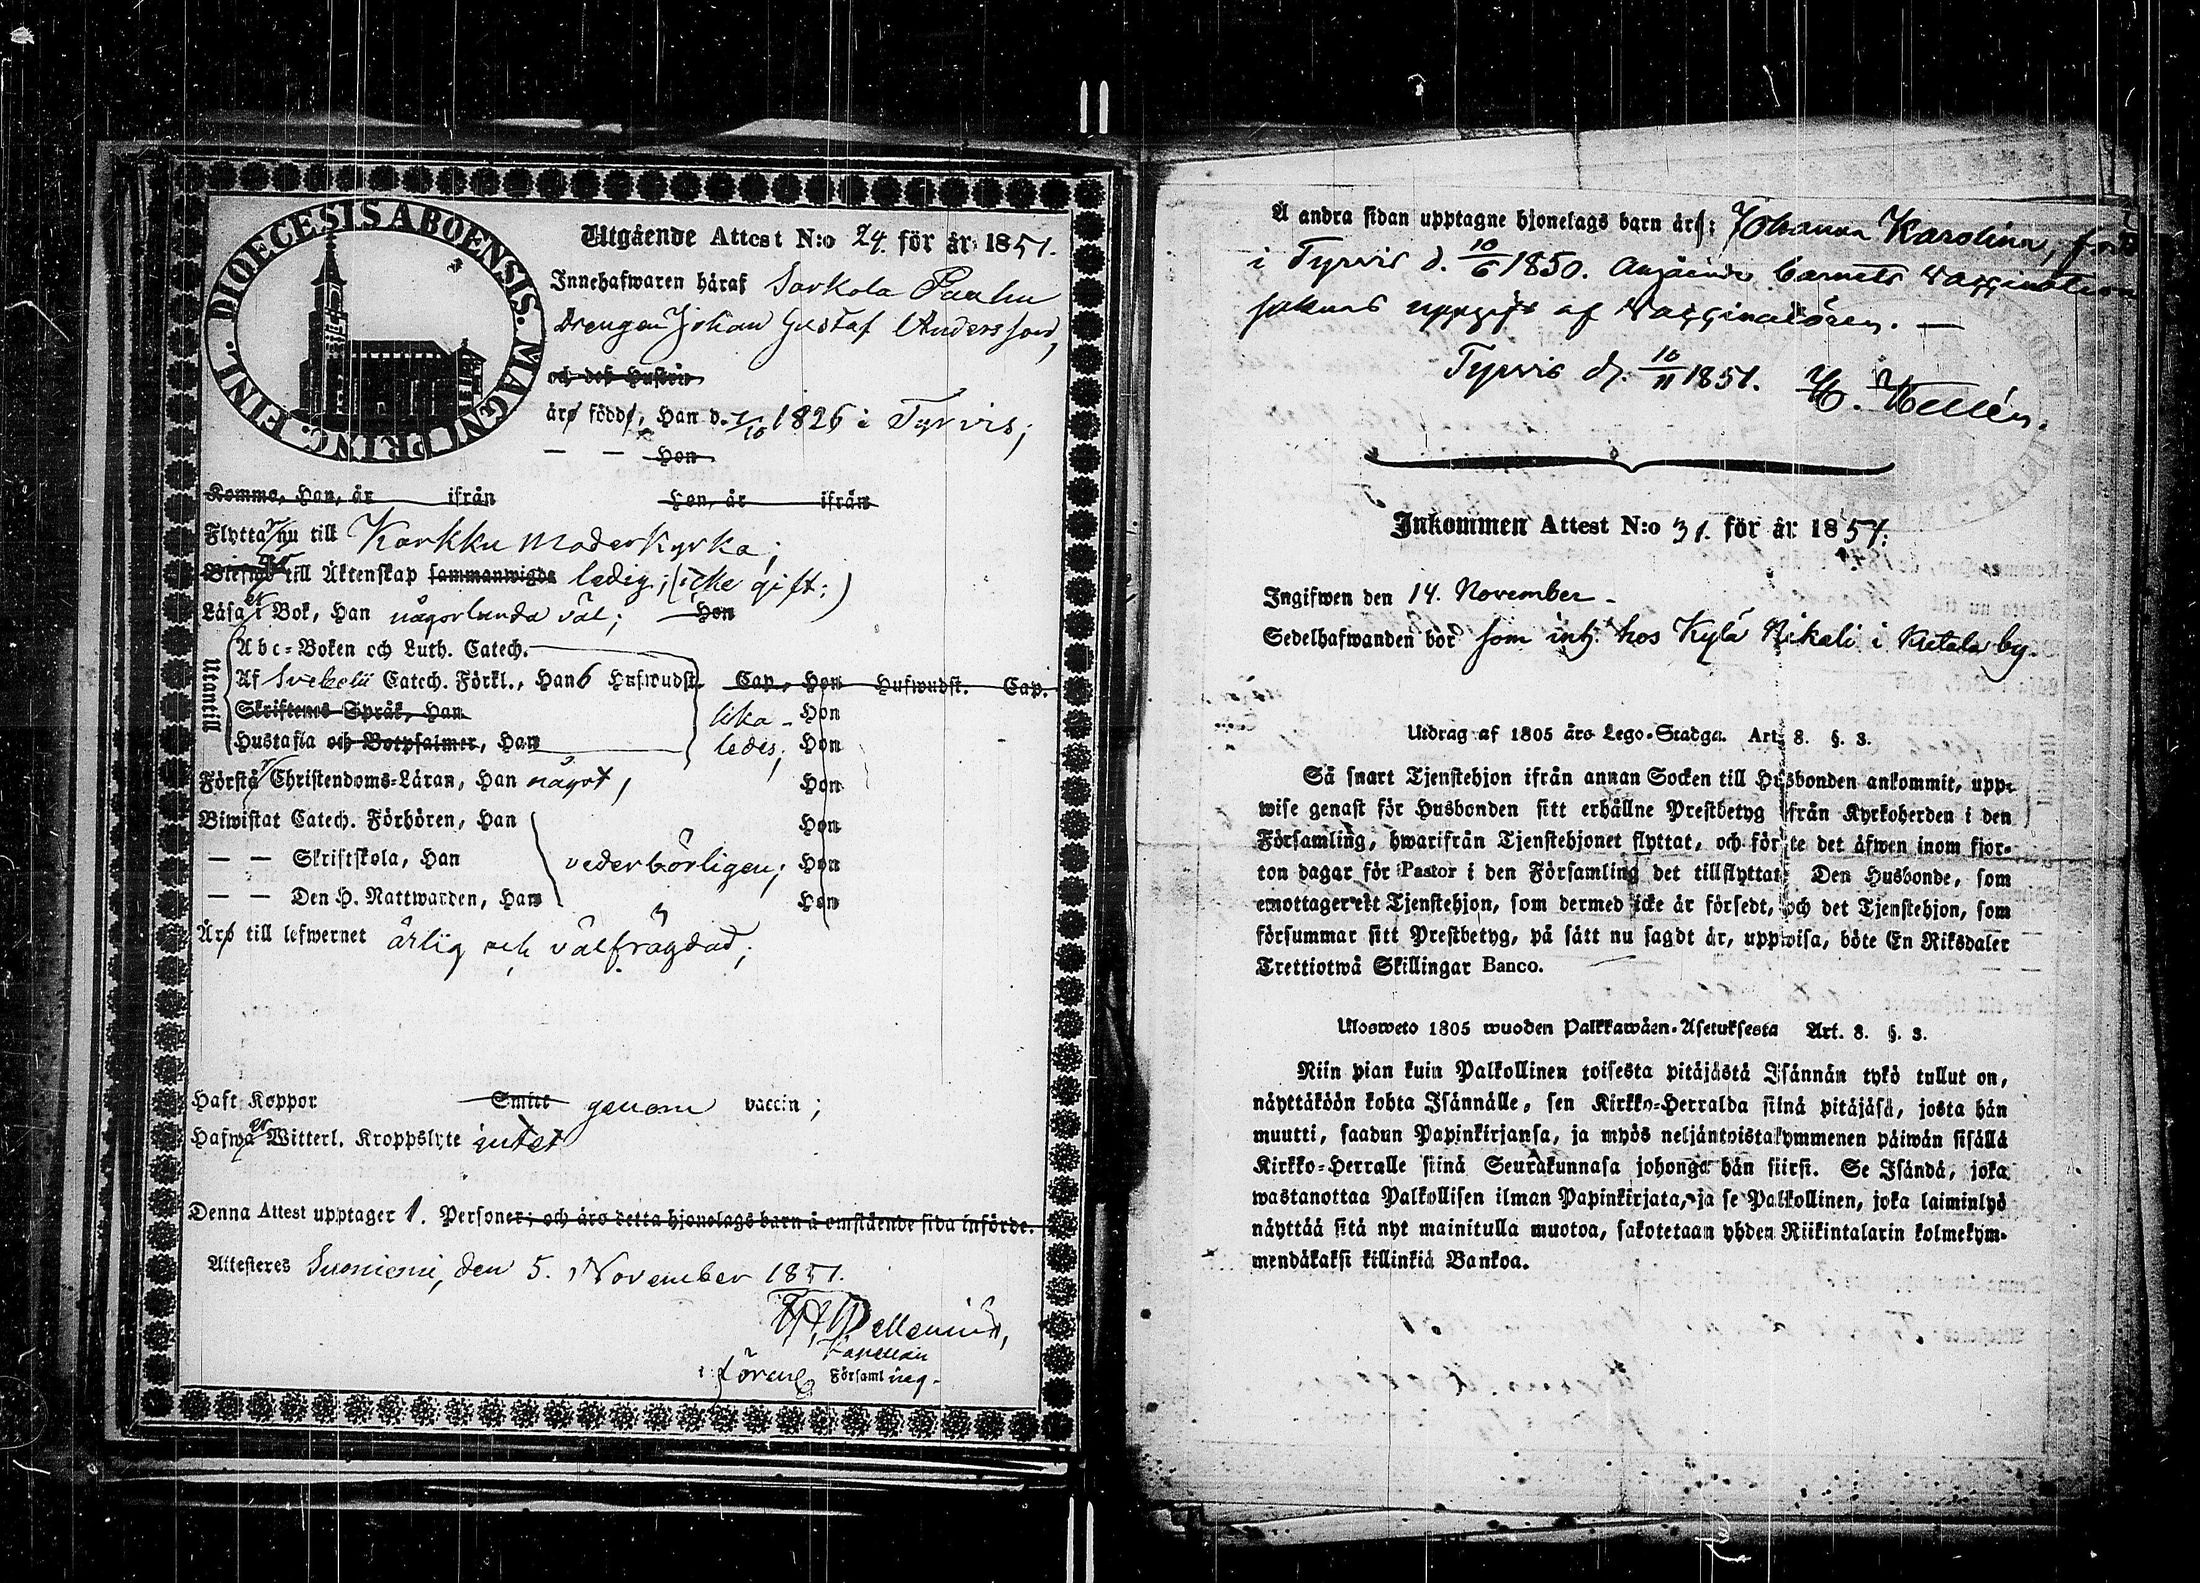 DIOECESIS ABOENSIS. MAGNI PRINC. FINL.
Utgående Attest N:o 24. för år 1851.
Innehafwaren häraf Sarkola Paahu
drengen Johan Gustaf Andersson,
och deß Hustru
äro född, Han d. 7/10 1826 i Tyrvis;
— — Hon
Komma, Han, år ifrån Hon, år ifrån
Flyttar nu till Karkku Moderkyrka;
till Äktenskap sammanwigde ledig; (icke gift;)
Läsa i Bok, Han någorlunda väl; Hon
Utantill
Abc-Boken och Luth. Catech.
Af Svebelii Catech. Förkl., Han 6 Hufwudst. Cap., Hon Hufwudst. Cap.
Skriftenes Språk, Han lika- Hon
Hustafla och Botpsalmer, Han ledes; Hon
Förstå Christendoms-Läran, Han något, Hon
Biwistat Catech. Förhören, Han Hon
— — Skriftskola, Han vederbörligen; Hon
— — Den H. Nattwarden, Han Hon
Äro till lefwernet ärlig och välfrägdad;
Haft Koppor Smitt genom vaccin;
Hafwa Witterl. Kroppslyte intet
Denna Attest upptager 1. Personer; och äro detta hjonelags barn å omstående sida införde.
Attesteres Suoniemi, den 5. November 1851.
Kapellan
i Församling.
Å andra sidan upptagne hjonelags barn är: Johanna Karolina, född
i Tyrvis d. 10/6 1850. Angående barnets vaccination
saknas uppgift af Vaccinatören. —
Tyrvis d. 10/11 1851. H. Hellén.
Inkommen Attest N:o 31. för år 1851.
Ingifwen den 14. November -
Sedelhafwanden bor som inh. hos Kylä Nikali i Kutala by.
Utdrag af 1805 års Lego-Stadga. Art. 8. §. 3.
Så snart Tjenstehjon ifrån annan Socken till Husbonden ankommit, upp-
wise genast för Husbonden sitt erhållne Prestbetyg ifrån Kyrkoherden i den
Församling, hwarifrån Tjenstehjonet flyttat, och förete det äfwen inom fjor-
ton dagar för Pastor i den Församling det tillflyttat. Den Husbonde, som
emottager ett Tjenstehjon, som dermed icke är försedt, och det Tjenstehjon, som
försummar sitt Prestbetyg, på sätt nu sagdt är, uppwisa, böte En Riksdaler
Trettiotwå Skillingar Banco.
Ulosweto 1805 wuoden Palkkawäen-Asetuksesta Art. 8. §. 3.
Niin pian kuin Palkollinen toisesta pitäjästä Isännän tykö tullut on,
näyttäköön kohta Isännälle, sen Kirkko-Herralda siinä pitäjäsä, josta hän
muutti, saadun Papinkirjansa, ja myös neljäntoistakymmenen päiwän sisällä
Kirkko-Herralle siinä Seurakunnasa johonga hän siirsi. Se Isändä, joka
wastanottaa Palkollisen ilman Papinkirjata, ja se Palkollinen, joka laiminlyö
näyttää sitä nyt mainitulla muotoa, sakotetaan yhden Riikintalarin kolmekym-
mendäkaksi killinkiä Bankoa.